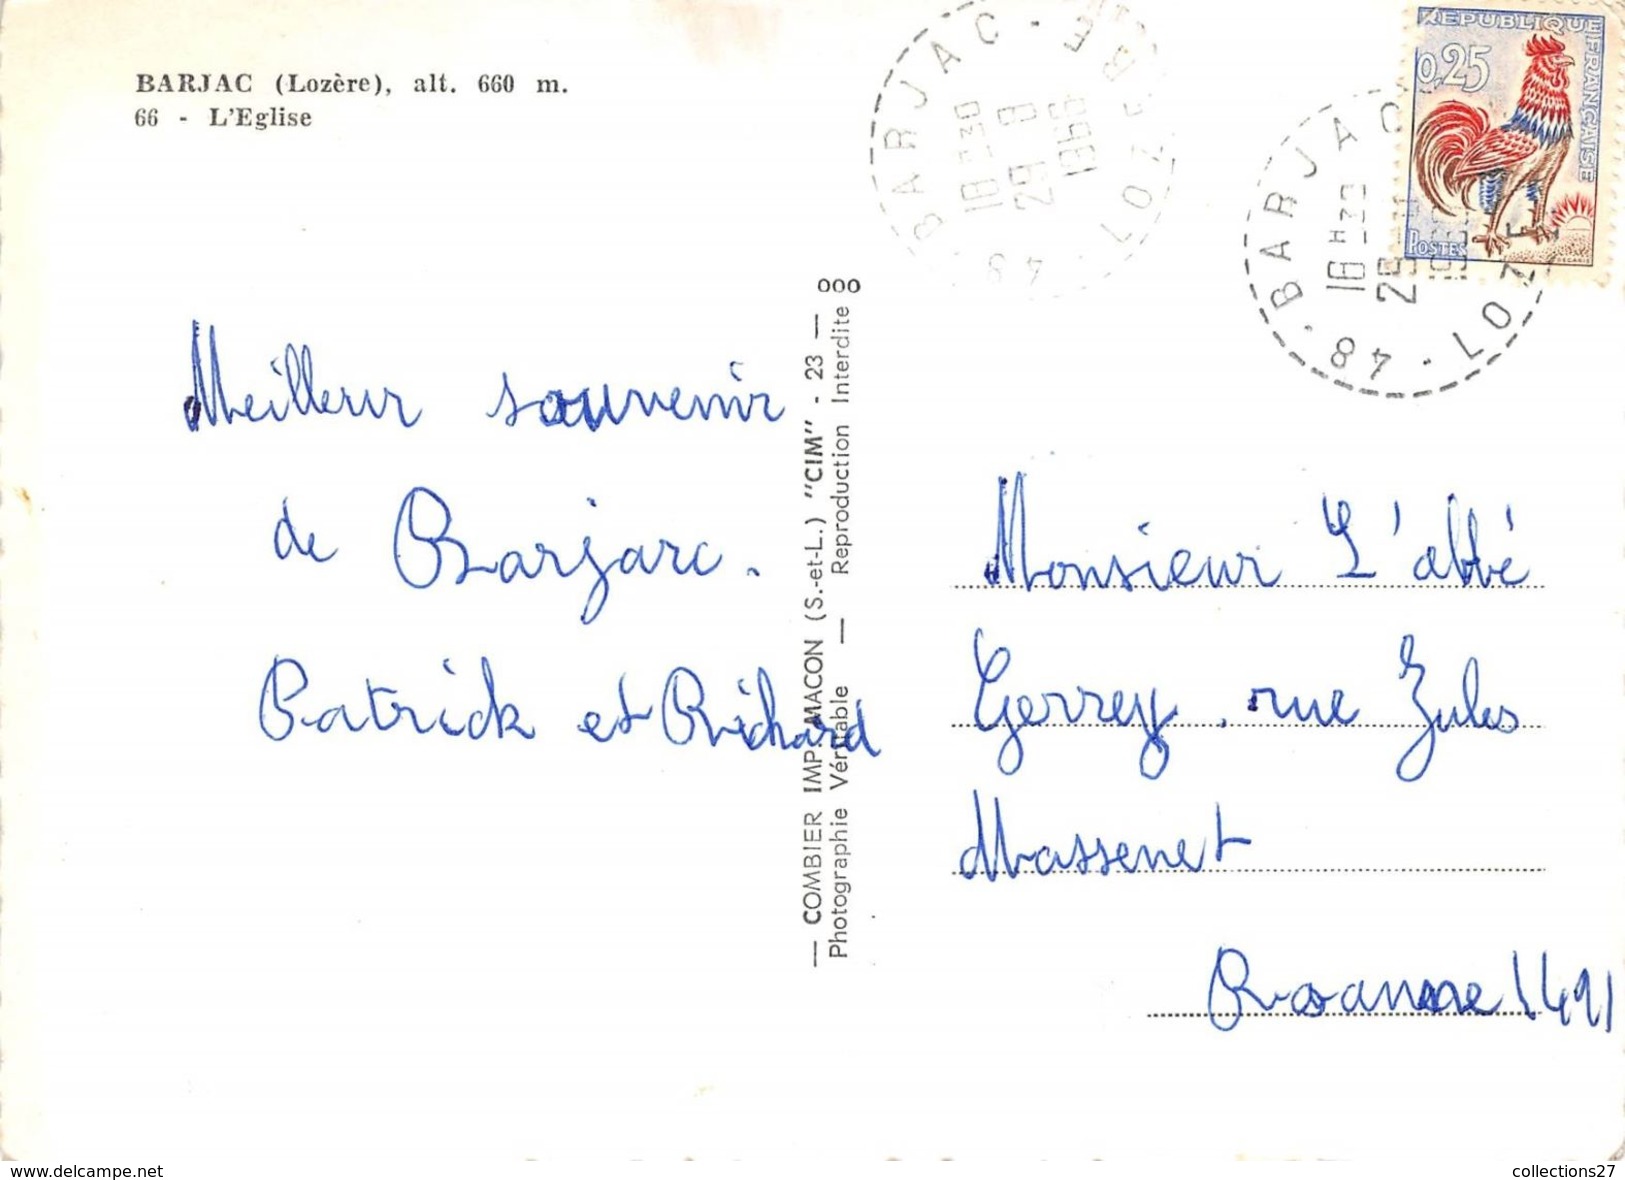 BARJAC (Lozère), alt. 660 m.
66 - L'Eglise
Meilleur souvenir
de Barjarc.
Patrick et Richard
— COMBIER IMP. MACON (S.-et-L.) "CIM" - 23 —
Photographie Véritable — Reproduction Interdite
000
BARJAC - 
18 H30
29 8
1966
48 · LOZ
· BARJAC
18 H30
48 · LOZ
REPUBLIQUE FRANÇAISE
0,25
POSTES
DECARIS
Monsieur L'abbé
Gerrey. rue Jules
Massenet
Roanne (42)
www.delcampe.net
collections27